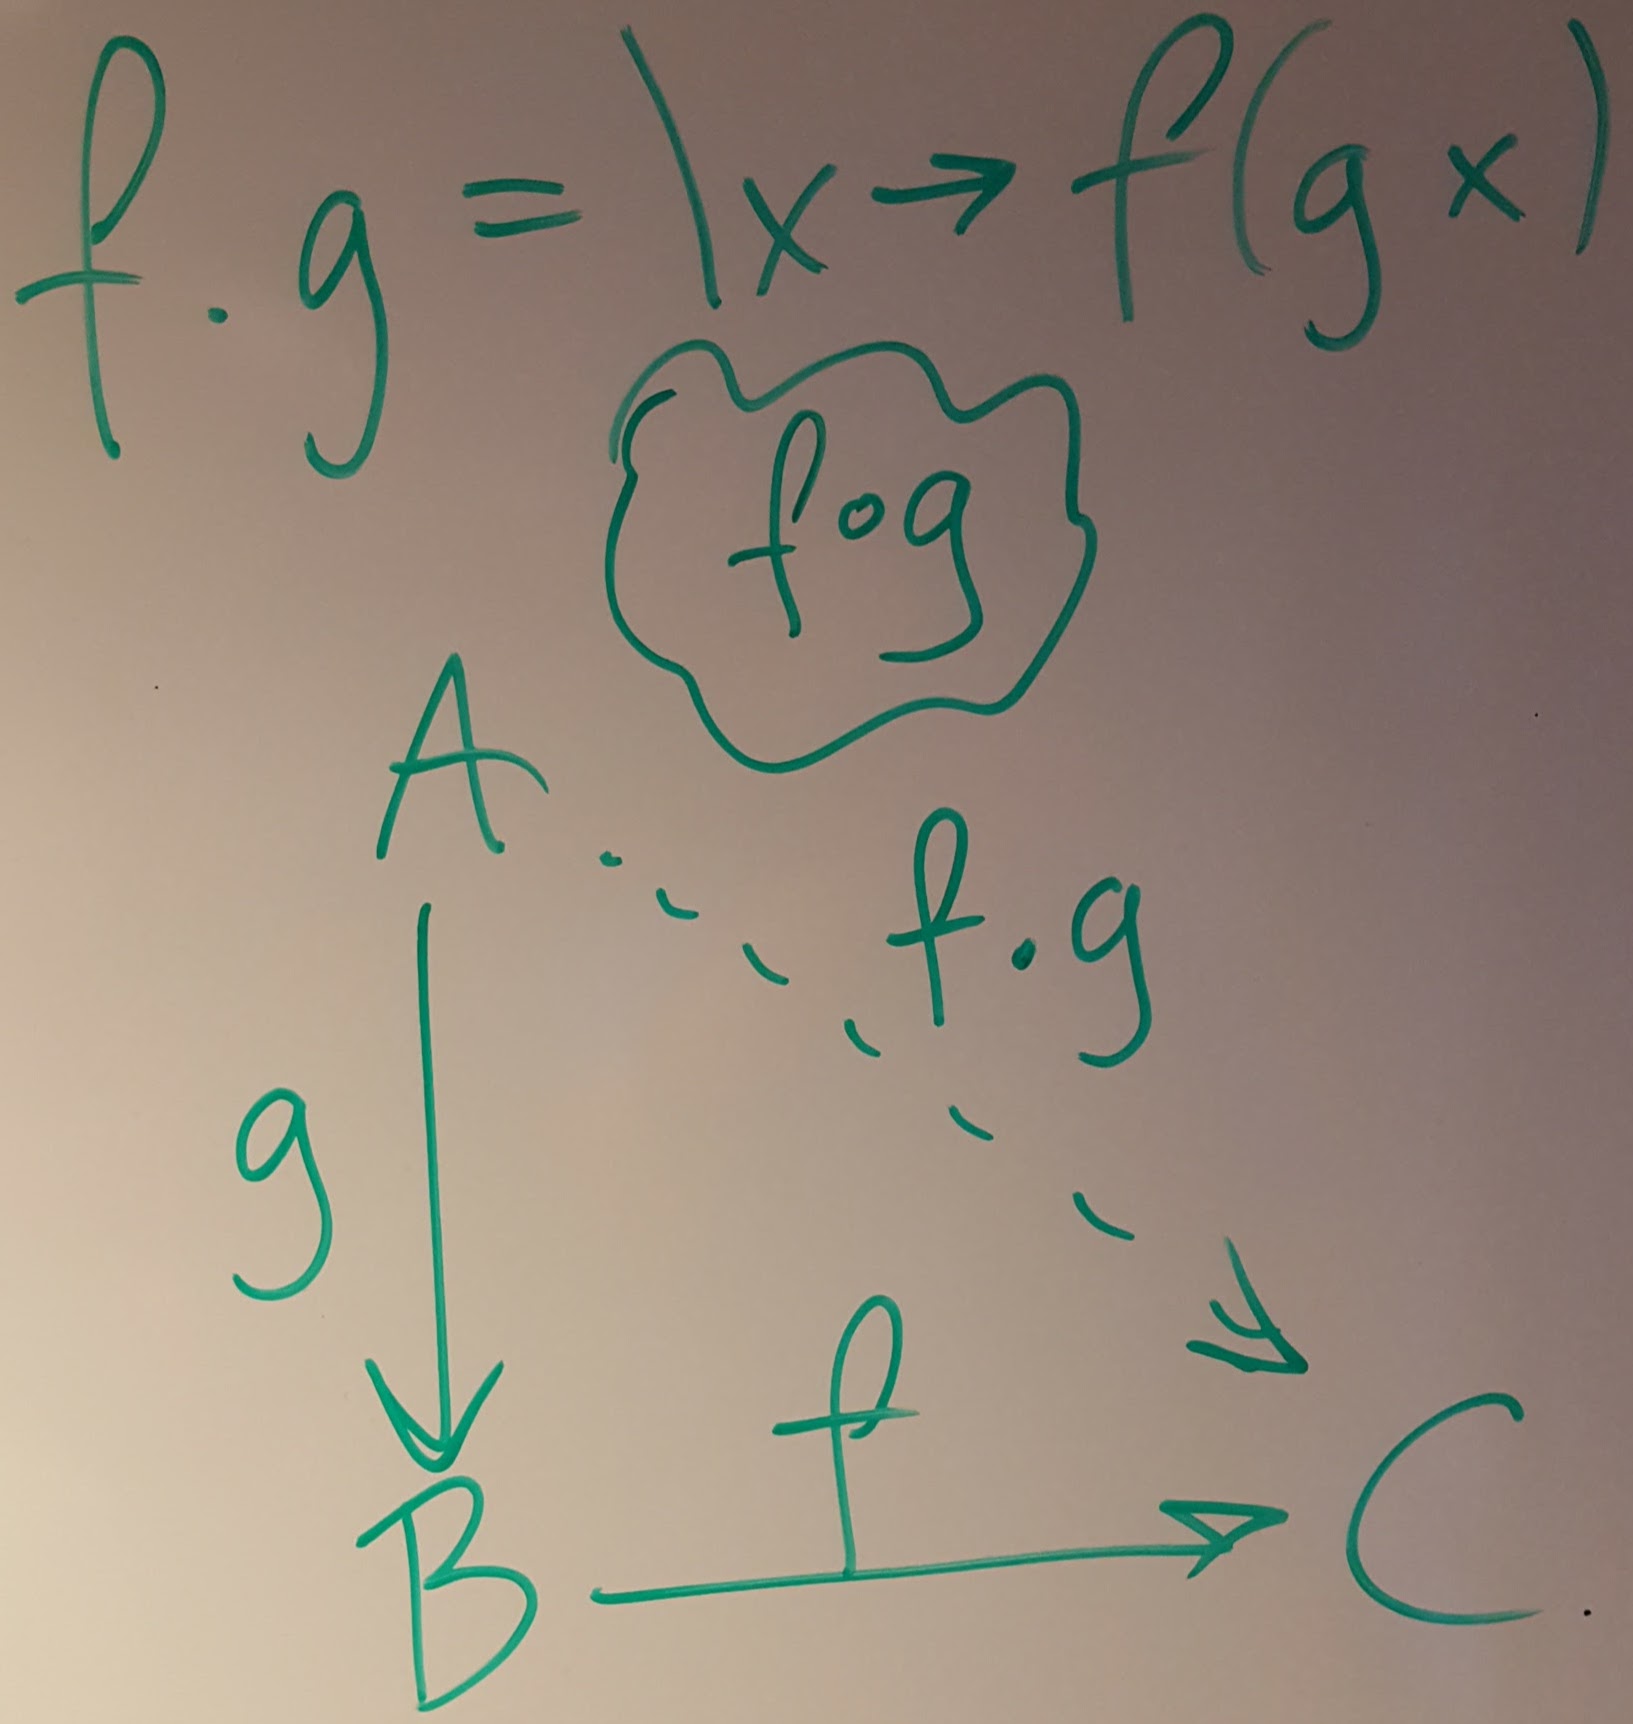 f . g = \x → f(g x)
f∘g
A
f . g
g
f
B
C